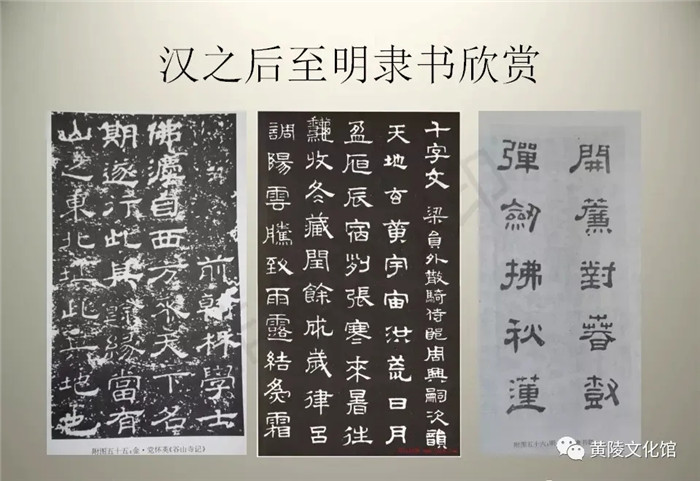 汉之后至明隶书欣赏
前翰林學士
佛自西方來天下名
期遂行此其緣當有
山之東北此其地也
附图五十五：金·党怀英《谷山寺记》
千字文 梁員外散騎侍郎周興嗣次韻
天地玄黃宇宙洪荒日月
盈昃辰宿列張寒來暑往
秋收冬藏閏餘成歲律呂
調陽雲騰致雨露結為霜
開對春
彈劍拂秋蓮
附图五十六：明
黄陵文化馆